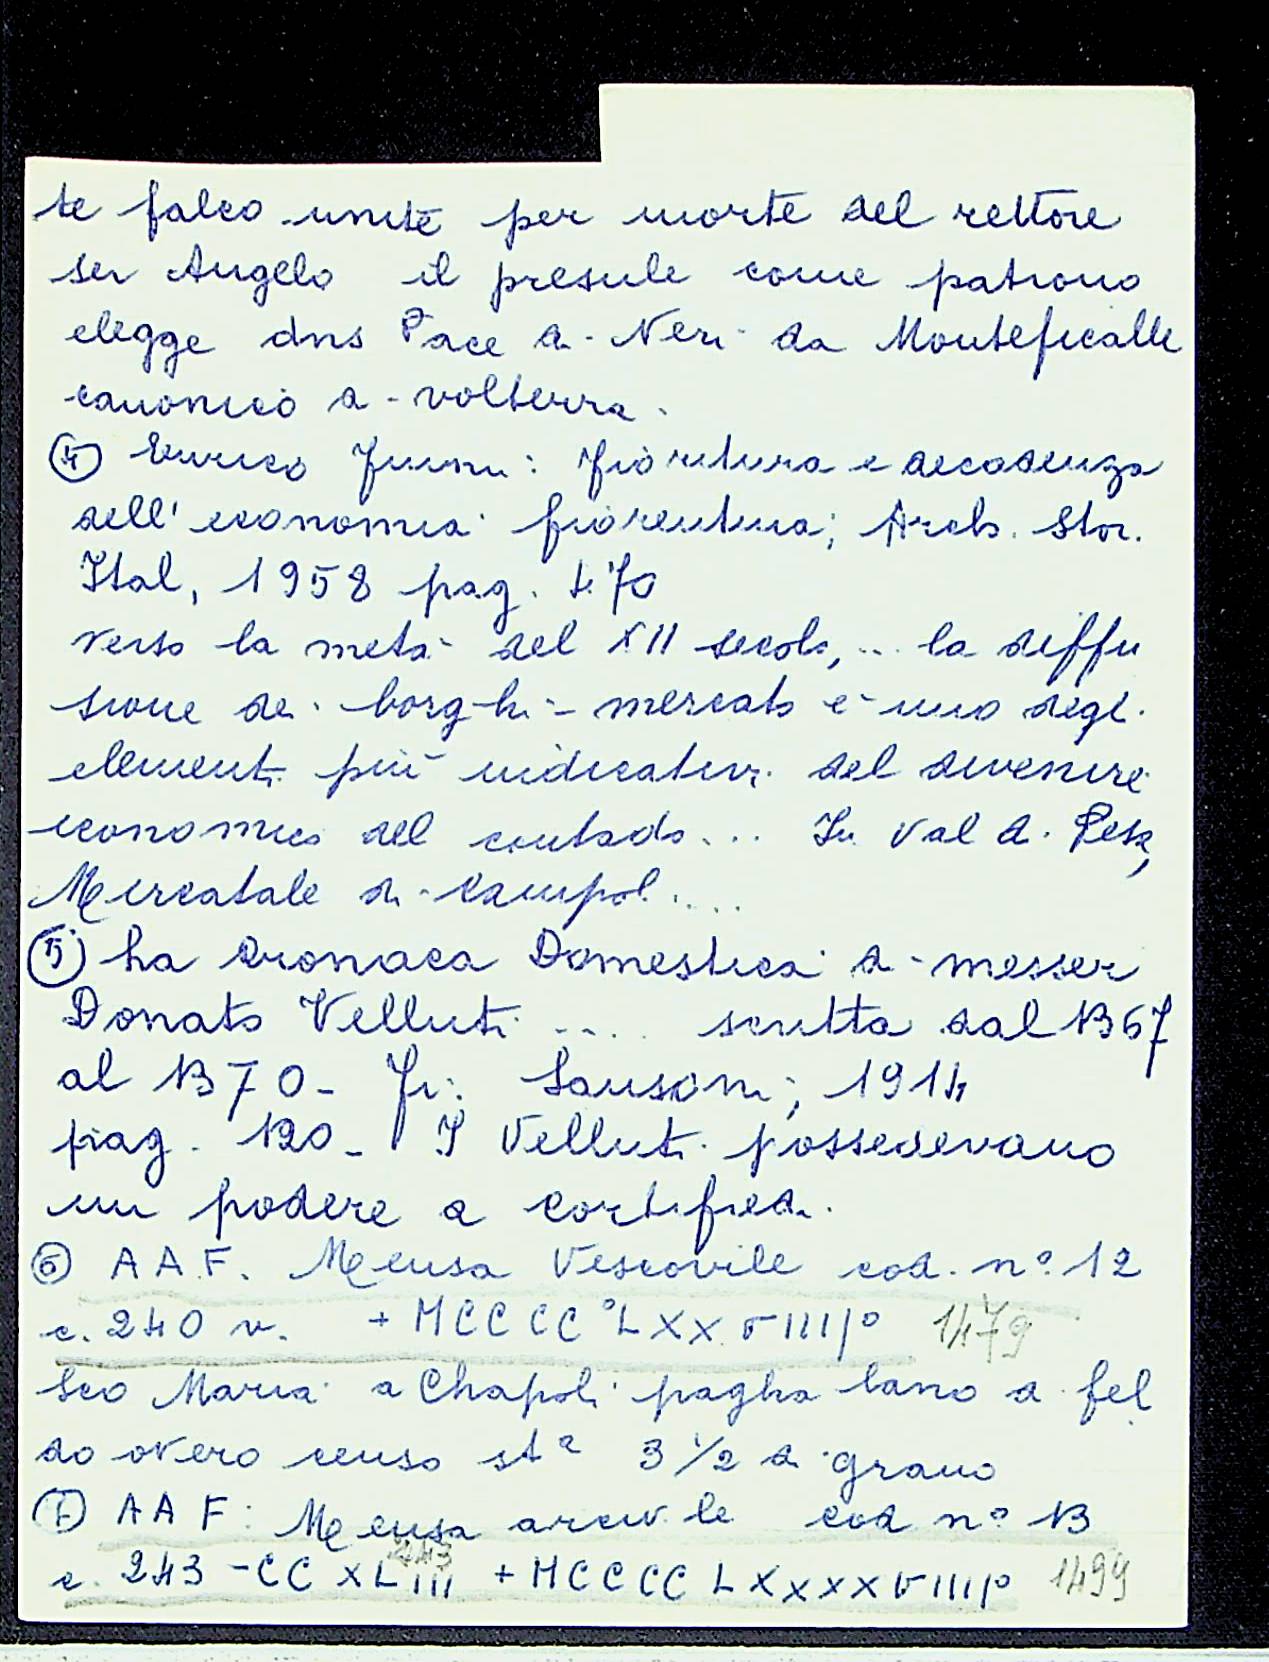 te falco unite per morte del rettore
ser Angelo il presule come patrono
elegge dns Pace di Neri da Monteficalle
canonico di Volterra.
④ Enrico Fiumi: Fioritura e decadenza
dell'economia fiorentina; Arch. Stor.
Ital, 1958 pag. 470
verso la metà del XII secolo,... la diffu
sione dei borghi-mercato è uno degli
elementi più indicativi del divenire
economico del contado... In Val di Pesa,
Mercatale di Campoli....
⑤ La Cronaca Domestica di messer
Donato Velluti .... scritta dal 1367
al 1370- Fi: Sansoni; 1914
pag. 120- I Velluti possedevano
un podere a Cortifredi.
⑥ A A F. Mensa Vescovile cod. n° 12
c. 240 v. + MCCCC°LXXVIIII° 1479
Sco Maria a Chapoli pagha lano di fel
do overo censo stª 3 1/2 di grano
⑦ A A F: Mensa arciv.le cod n° 13
c. 243 -CC XLIII 243 + MCCCC LXXXXVIIII° 1499